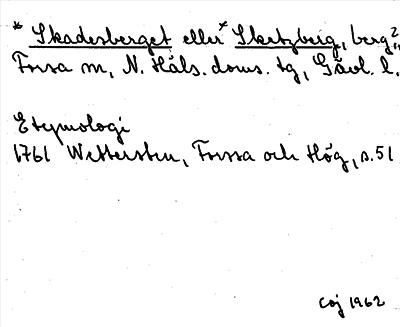 * Skadesberget eller *Sketzberg, berg?,
Forsa sn, N. Häls. doms. tg, Gävl. l.
Etymologi
1761 Wettersten, Forssa och Hög, s. 51
Coj 1962